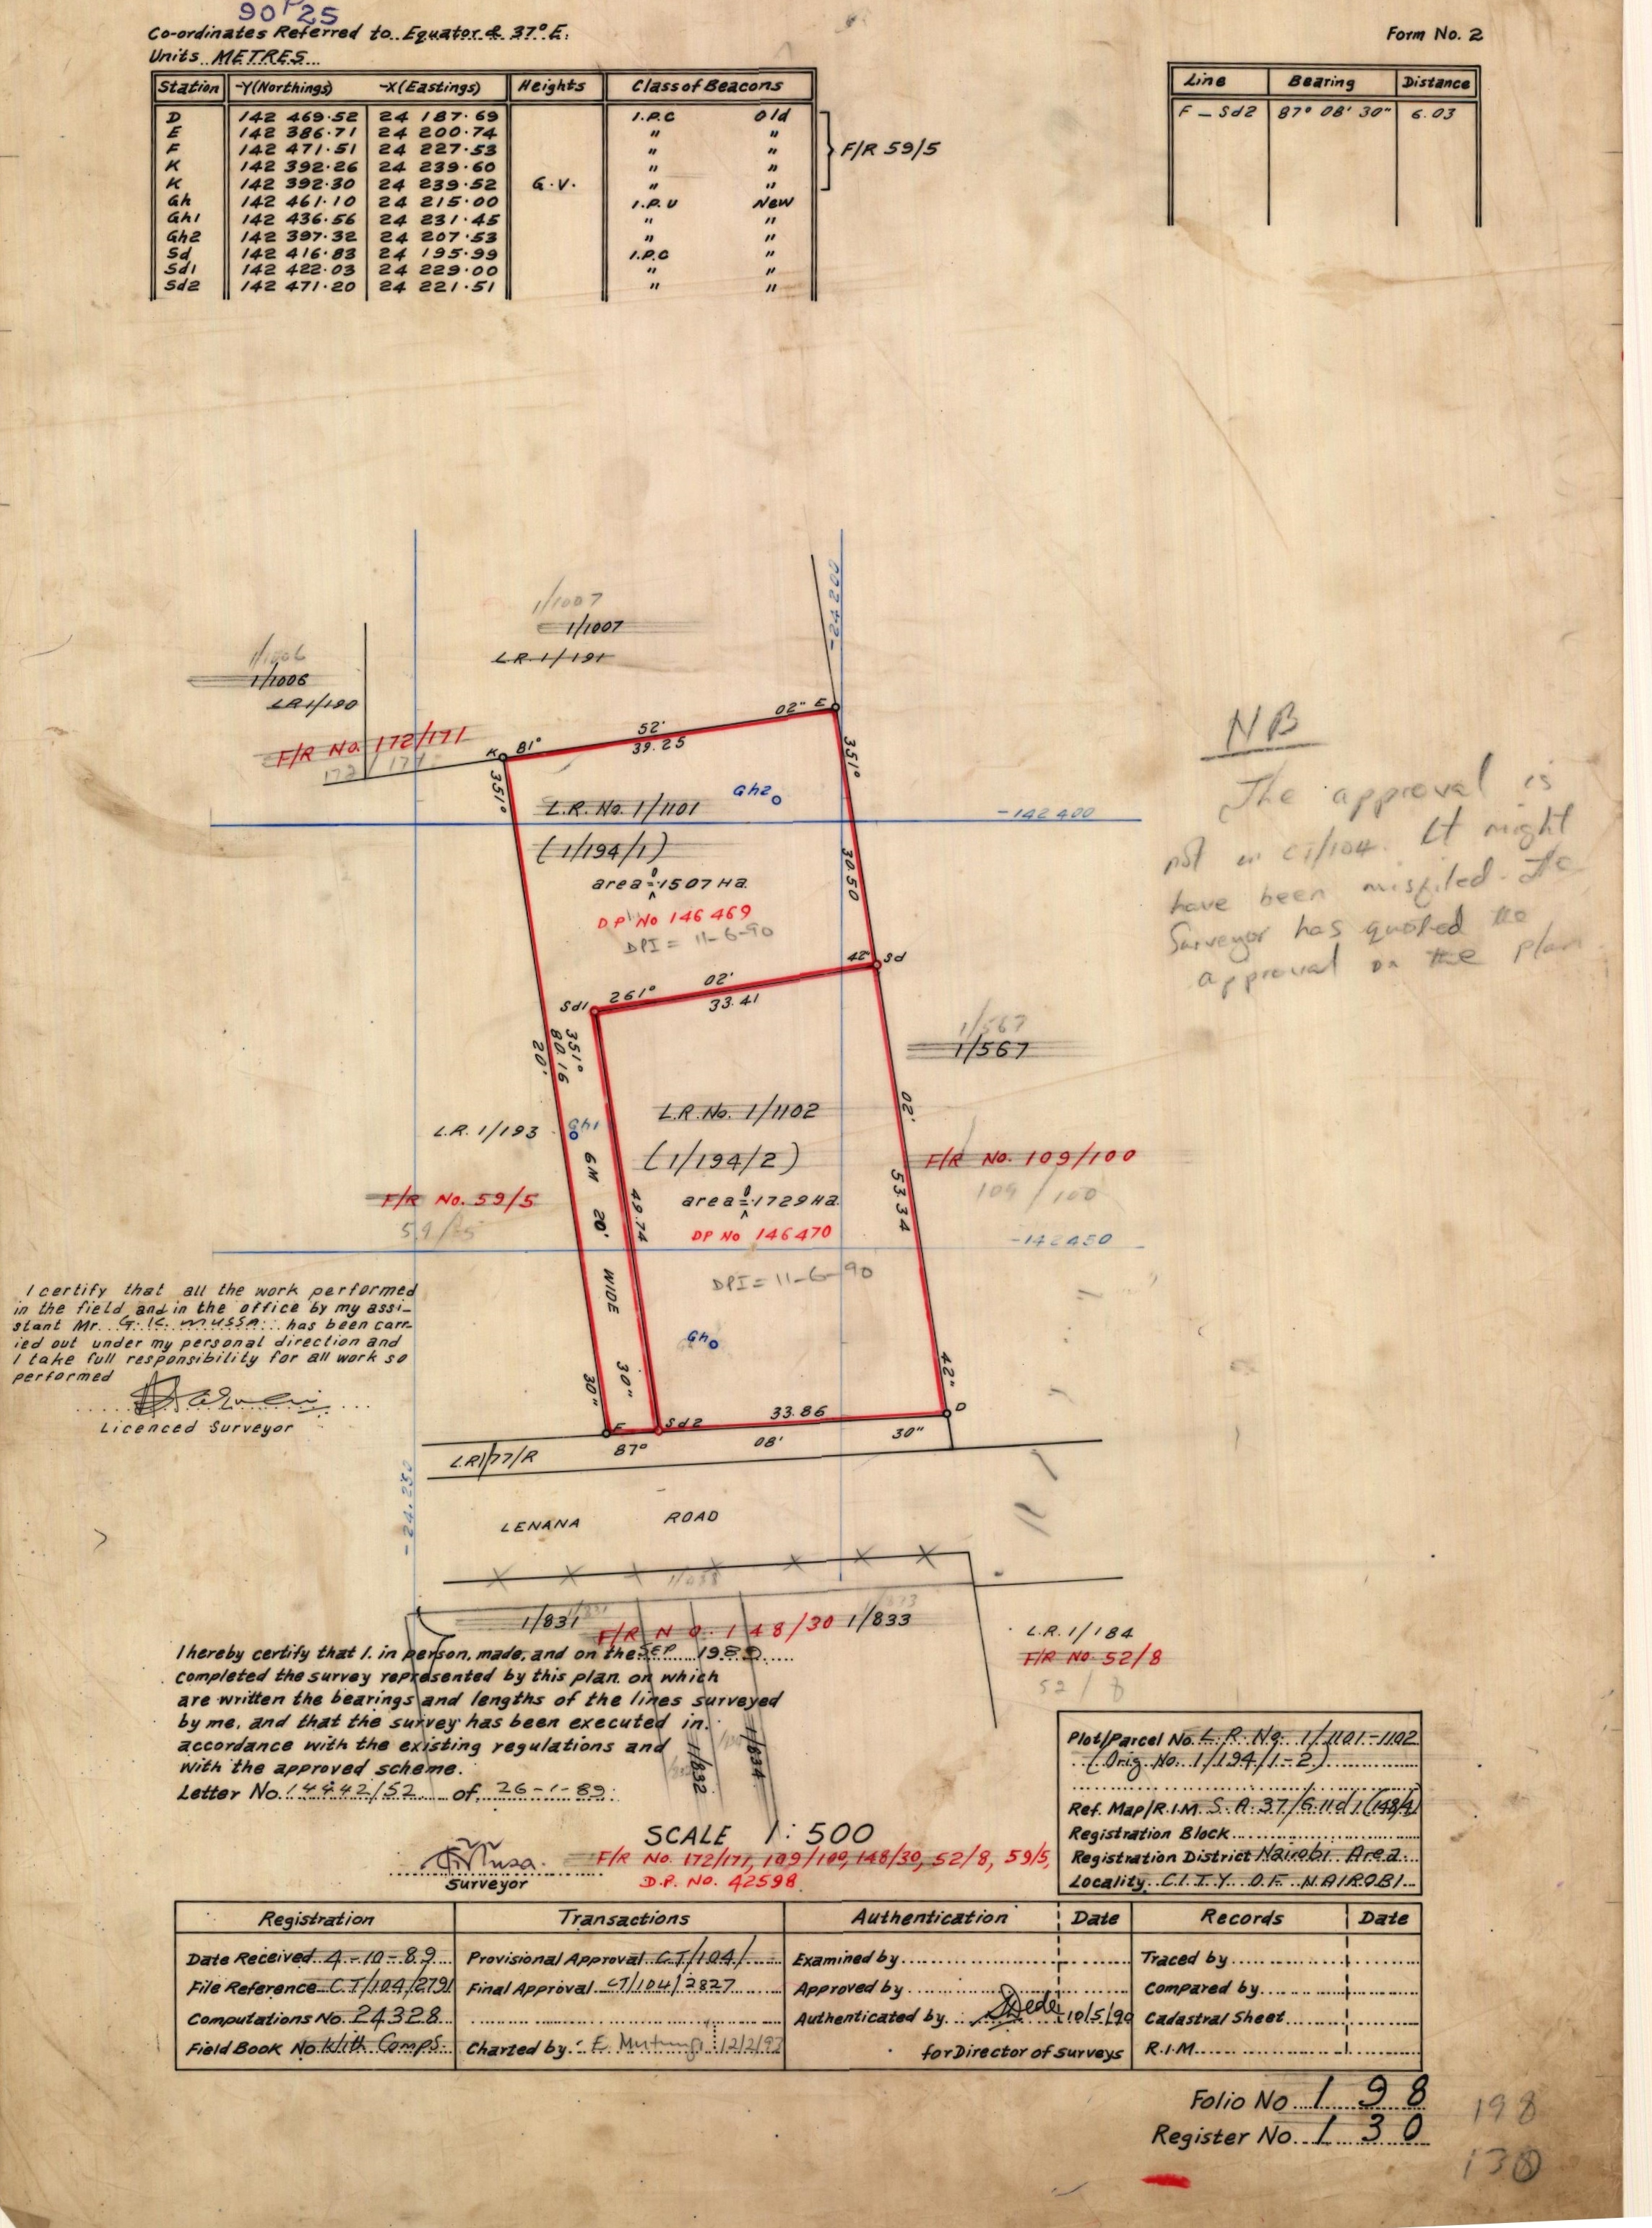 90P25
Co-ordinates Referred to Equator & 37° E.
Units METRES
Form No. 2
Station -Y(Northings) -X(Eastings) Heights Class of Beacons
D 142 469·52 24 187·69 I.P.C Old
E 142 386·71 24 200·74 " "
F 142 471·51 24 227·53 " "
K 142 392·26 24 239·60 " "
K 142 392·30 24 239·52 G.V. " "
Gh 142 461·10 24 215·00 I.P.U New
Gh1 142 436·56 24 231·45 " "
Gh2 142 397·32 24 207·53 " "
Sd 142 416·83 24 195·99 I.P.C "
Sd1 142 422·03 24 229·00 " "
Sd2 142 471·20 24 221·51 " "
F/R 59/5
Line Bearing Distance
F – Sd2 87° 08' 30" 6.03
-24 200
1/1007
1/1007
L.R. 1/191
1/1006
1/1006
L.R. 1/190
F/R No. 172/171
172/171
K 81° 52' 02" E
39.25
351°
351°
Gh2
L.R. No. 1/1101
-142 400
(1/194/1)
30.50
area=0·1507 Ha
DP No 146469
DPI = 11-6-90
NB
The approval is
not in CT/104. It might
have been misfiled. The
Surveyor has quoted the
approval on the plan
42" Sd
Sd1 261° 02'
33.41
351°
80.16
20'
1/567
1/567
L.R. No. 1/1102
02'
L.R. 1/193
Gh1
(1/194/2)
F/R No. 109/100
109/100
6M 20' WIDE
49.74
53.34
F/R No. 59/5
area=0·1729 Ha
DP No 146470
-142450
DPI = 11-6-90
Gh
I certify that all the work performed
in the field and in the office by my assi-
stant Mr. G. K. Mussa has been carr-
ied out under my personal direction and
I take full responsibility for all work so
performed
Licenced Surveyor
30"
30"
42"
F Sd2 33.86 D
87° 08' 30"
L.R. 1/77/R
-24,250
LENANA ROAD
1/831 F/R No. 148/30 1/833
L.R. 1/184
F/R No. 52/8
52/8
1/832
1/834
I hereby certify that I. in person, made, and on the SEP 1989
completed the survey represented by this plan. on which
are written the bearings and lengths of the lines surveyed
by me, and that the survey has been executed in.
accordance with the existing regulations and
with the approved scheme.
Letter No. 14442/52 of 26-1-89
Surveyor
SCALE 1:500
F/R No. 172/171, 109/100, 148/30, 52/8, 59/5,
D.P. No. 42598
Plot/Parcel No. L.R. No. 1/1101-1102
(Orig. No. 1/194/1-2)
Ref. Map/R.I.M. S.A.37/G.11d1(148/4)
Registration Block
Registration District Nairobi Area
Locality CITY OF NAIROBI
Registration Transactions Authentication Date Records Date
Date Received 4-10-89 Provisional Approval CT/104/ Examined by Traced by
File Reference CT/104/2791 Final Approval CT/104/2827 Approved by Compared by
Computations No. 24328 Authenticated by 10/5/90 Cadastral Sheet
Field Book No. With Comps. Charted by: 12/2/92 for Director of Surveys R.I.M.
Folio No 198
198
Register No. 130
130